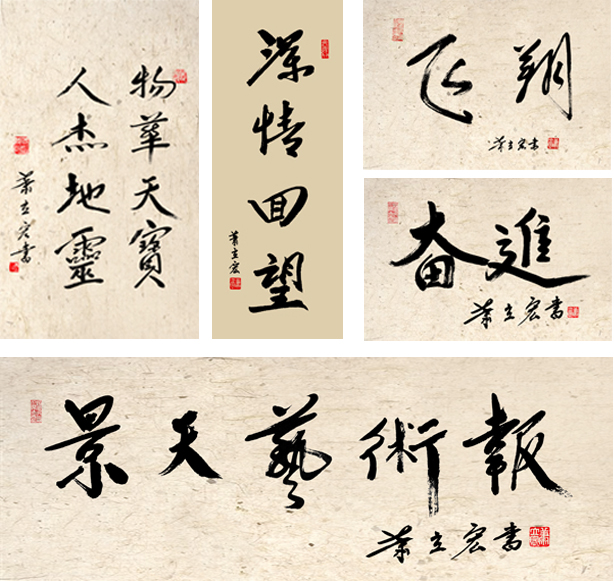 物華天寶
人杰地靈
萧立宏書
深情回望
萧立宏
飞翔
萧立宏書
奋進
萧立宏書
景天藝術報
萧立宏書